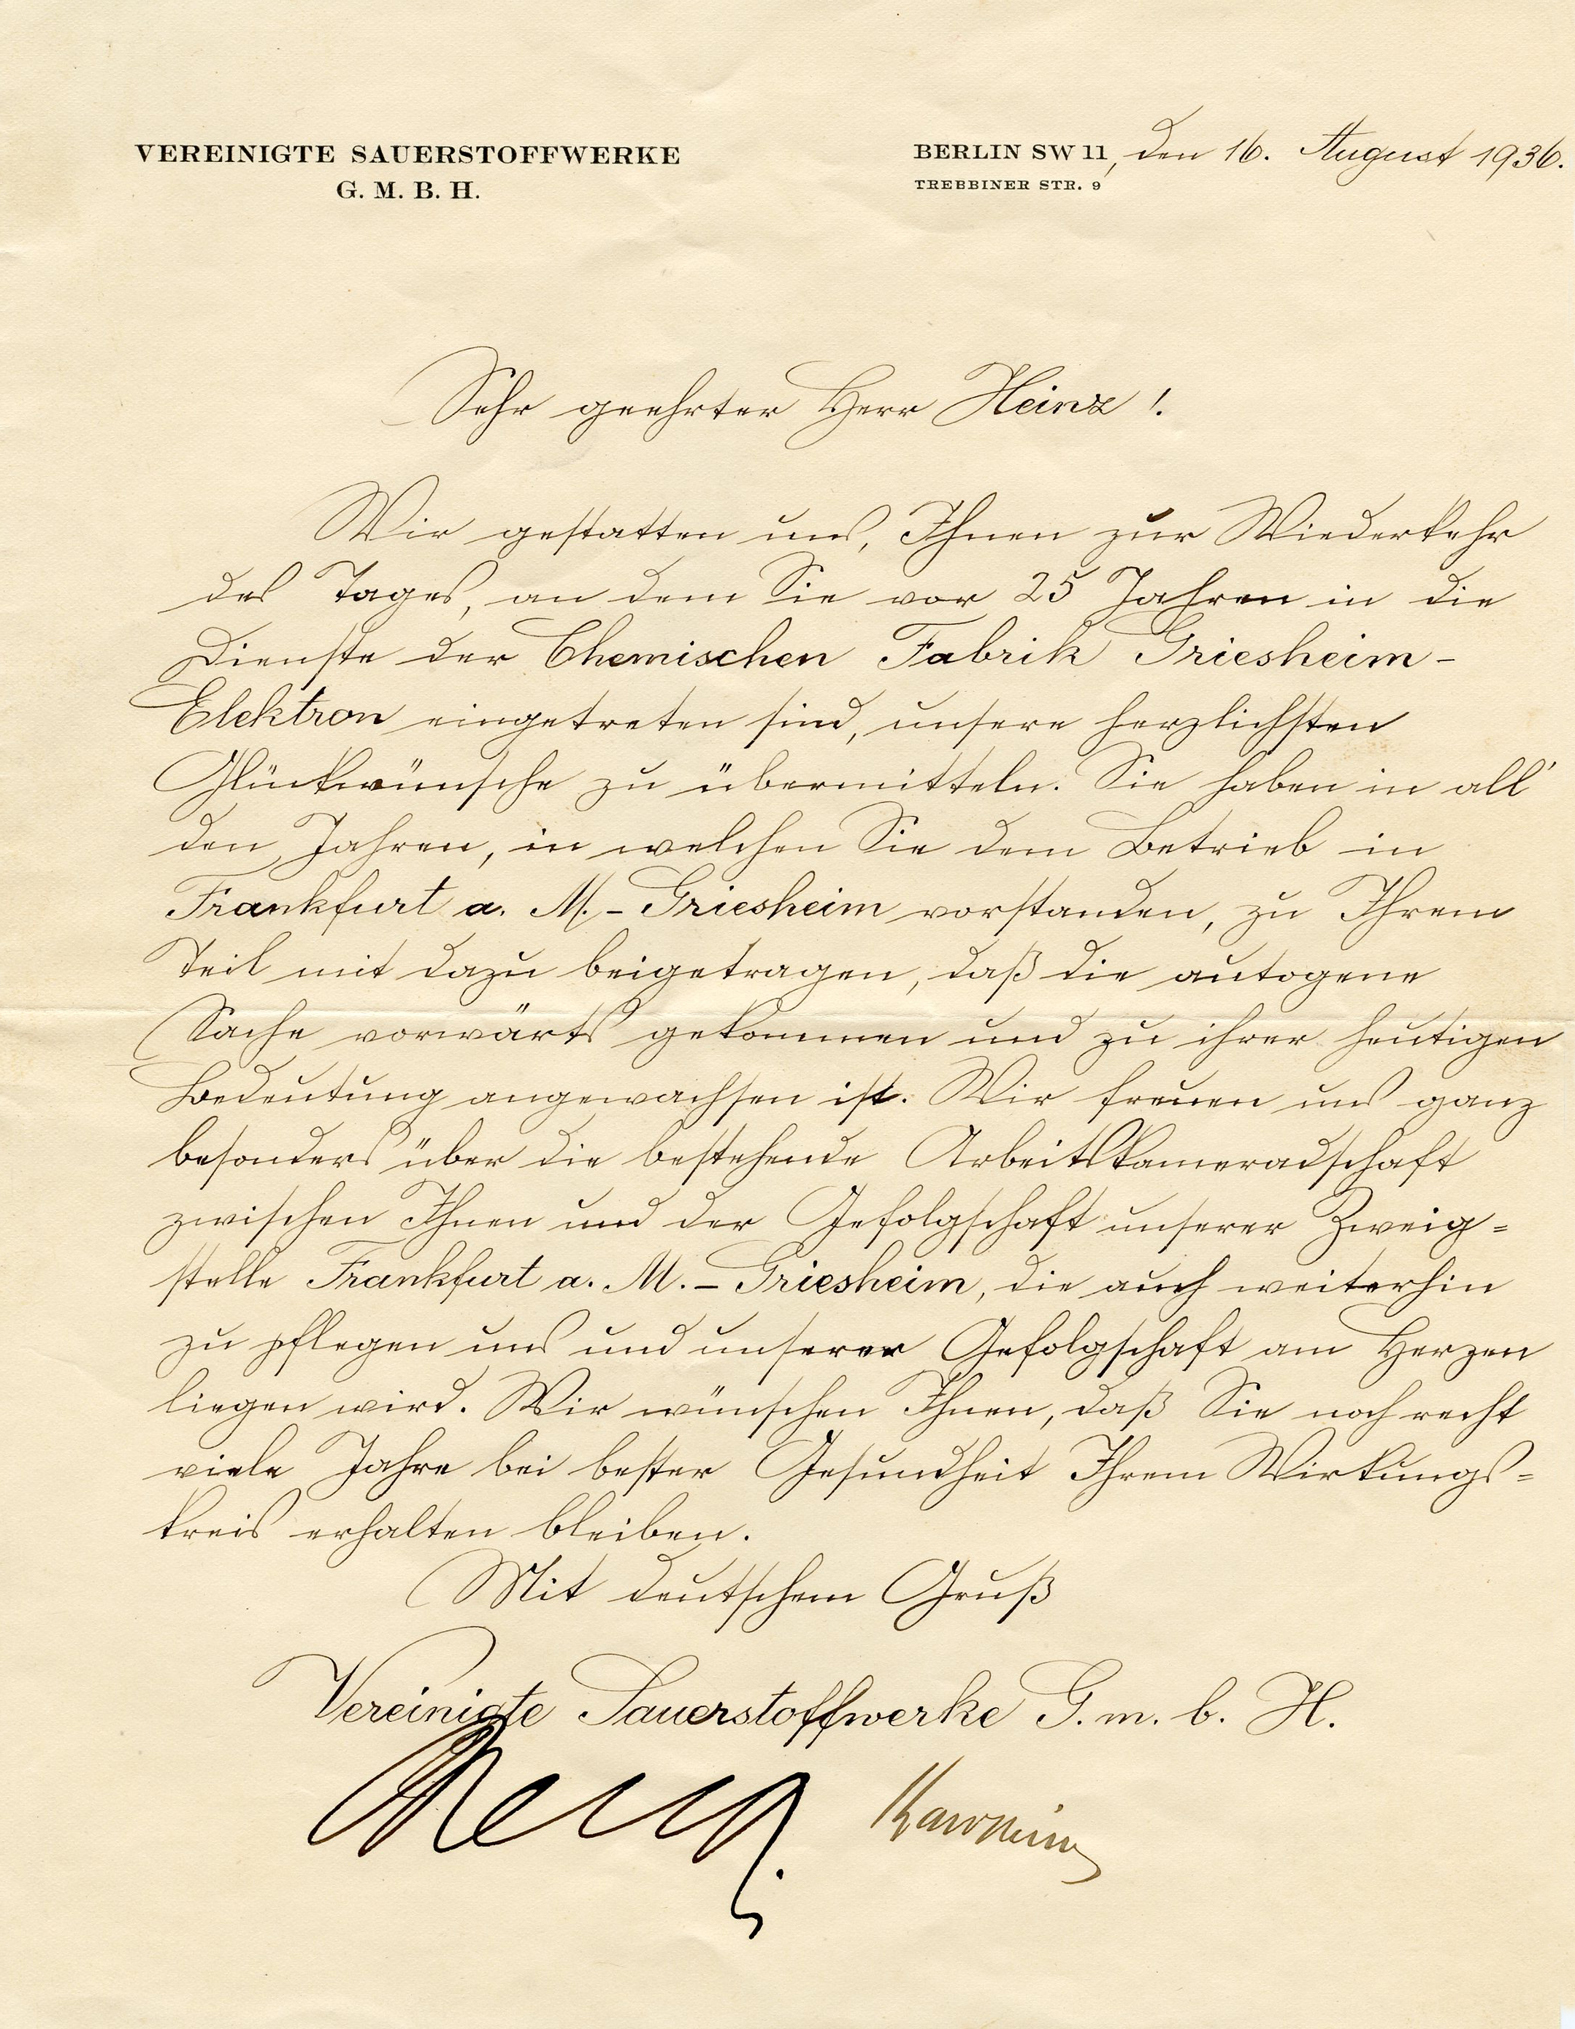 VEREINIGTE SAUERSTOFFWERKE
G. M. B. H.
BERLIN SW 11, den 16. August 1936.
TREBBINER STR. 9
Sehr geehrter Herr Heinz!
Wir gestatten uns, Ihnen zur Wiederkehr
des Tages, an dem Sie vor 25 Jahren in die
Dienste der Chemischen Fabrik Griesheim-
Elektron eingetreten sind, unsere herzlichsten
Glückwünsche zu übermitteln. Sie haben in all'
den Jahren, in welchen Sie dem Betrieb in
Frankfurt a. M. - Griesheim vorstanden, zu Ihrem
Teil mit dazu beigetragen, daß die autogene
Sache vorwärts gekommen und zu ihrer heutigen
Bedeutung angewachsen ist. Wir freuen uns ganz
besonders über die bestehende Arbeitskameradschaft
zwischen Ihnen und der Gefolgschaft unserer Zweig=
stelle Frankfurt a. M. - Griesheim, die auch weiterhin
zu pflegen uns und unserer Gefolgschaft am Herzen
liegen wird. Wir wünschen Ihnen, daß Sie noch recht
viele Jahre bei bester Gesundheit Ihrem Wirkungs=
kreis erhalten bleiben.
Mit deutschem Gruß
Vereinigte Sauerstoffwerke G. m. b. H.